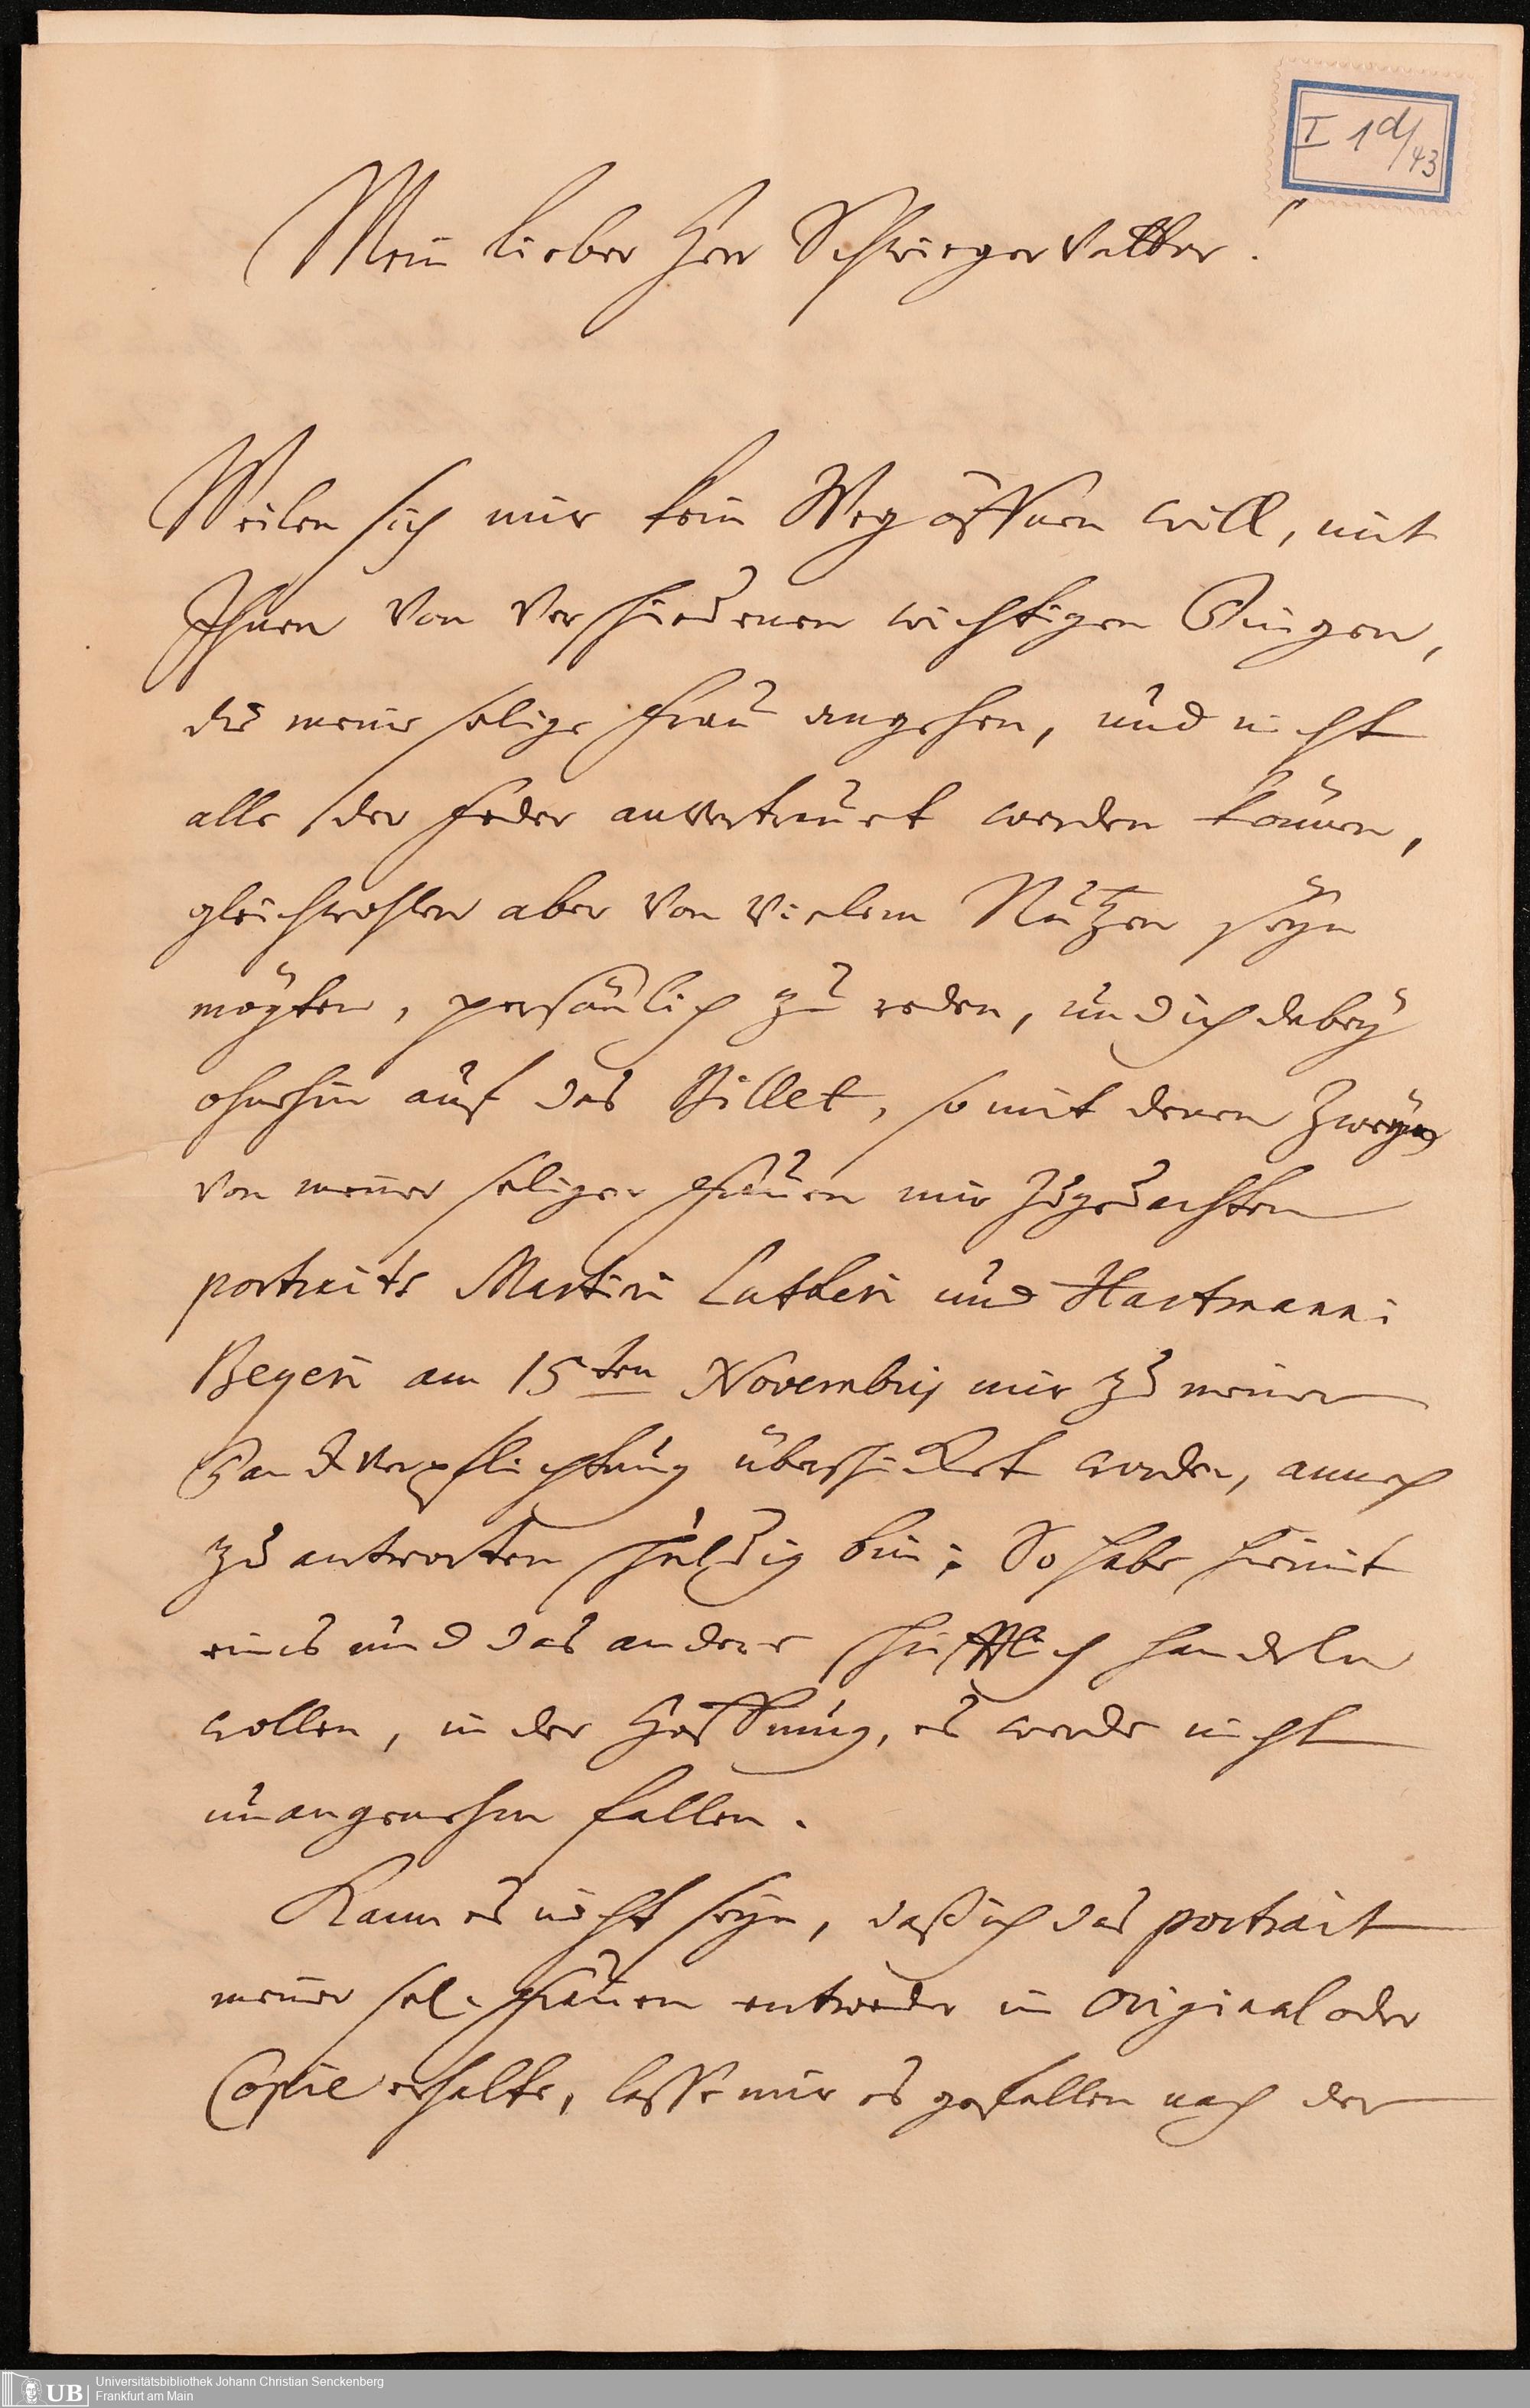 I 1d/43
Mein lieber Herr Schwiegervatter!
Weilen sich mir kein Weg öffnen will, mit
Ihnen von verschiedenen wichtigen Dingen,
die meine selige Frau angehen, und nicht
alle der Feder anvertrauet werden können,
gleichwohlen aber von vielem Nutzen seyn
mögten, persönlich zu reden, und ich dabey
ohnehin auf das Billet, so mit denen zweyen
von meiner seligen Frauen mir zugedachten
portraits Martini Lutheri und Hartmanni
Beyeri am 15ten Novembris mir zu meiner
Danckverpflichtung überschicket worden, annoch
zu antworten schuldig bin; So habe hiemit
eines und das andere schrifftlich handeln
wollen, in der Hoffnung, es werde nicht
unangenehm fallen.
Kann es nicht seyn, daß ich das portrait
meiner sel. Frauen entweder in Original oder
Copie erhalte, lasse mir es gefallen nach der
UB
Universitätsbibliothek Johann Christian Senckenberg
Frankfurt am Main